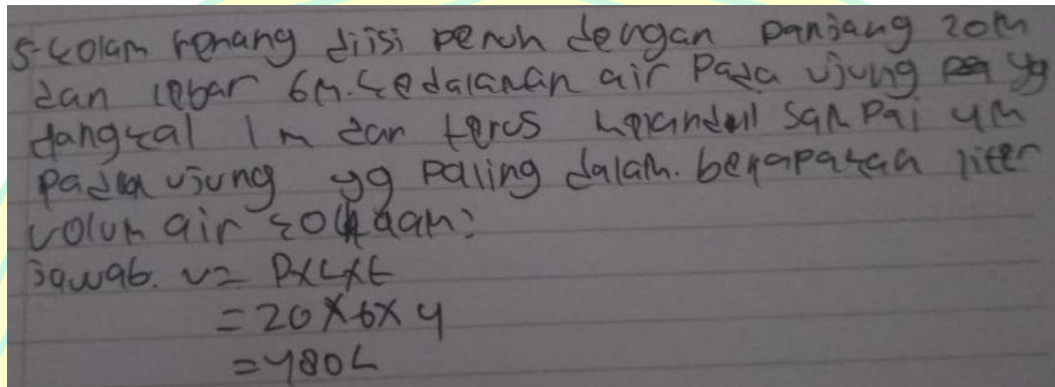 5. Kolam renang diisi penuh dengan panjang 20m
dan lebar 6m. Kedalaman air pada ujung yg
dangkal 1m dan terus melandai sampai 4m
pada ujung yg paling dalam. berapakah liter
volum air kolam?
jawab. V = PxLxt
= 20 x 6 x 4
= 480L